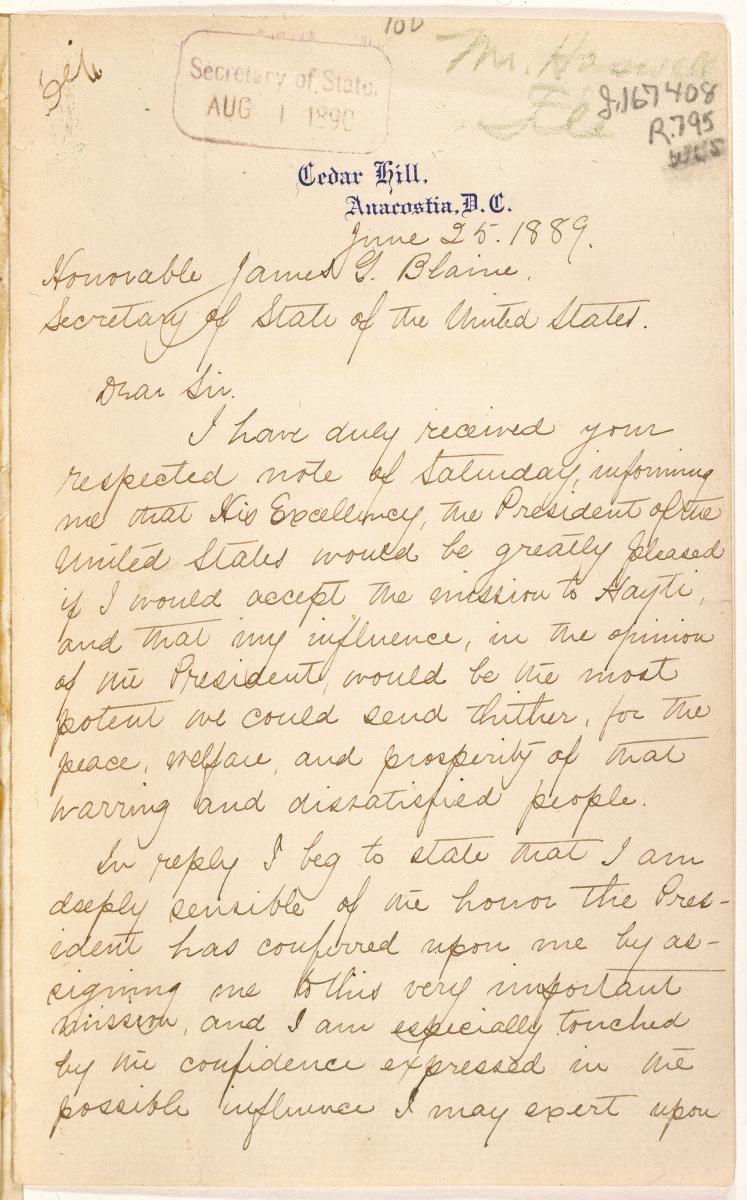 100
Secretary of State.
AUG 1 1890
Mr. Haswell
File
J.167408
R.795
Cedar Hill,
Anacostia, D.C.
June 25. 1889.
Honorable James G. Blaine.
Secretary of State of the United States.
Dear Sir.
I have duly received your
respected note of Saturday, informing
me that His Excellency, the President of the
United States would be greatly pleased
if I would accept the mission to Hayti,
and that my influence, in the opinion
of the President, would be the most
potent we could send thither, for the
peace, welfare, and prosperity of that
warring and dissatisfied people.
In reply I beg to state that I am
deeply sensible of the honor the Pres-
ident has conferred upon me by as-
signing me to this very important
mission, and I am especially touched
by the confidence expressed in the
possible influence I may exert upon